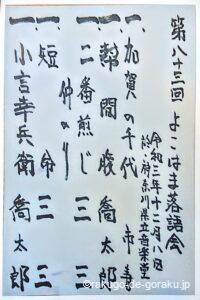 第八十三回 よこはま落語会
令和三年十二月八日
於・神奈川県立音楽堂
一、加賀の千代 市寿
一、幇間腹 喬太郎
一、二番煎じ 三三
仲入り
一、短命 三三
一、小言幸兵衛 喬太郎
©rakugo-de-goraku.jp